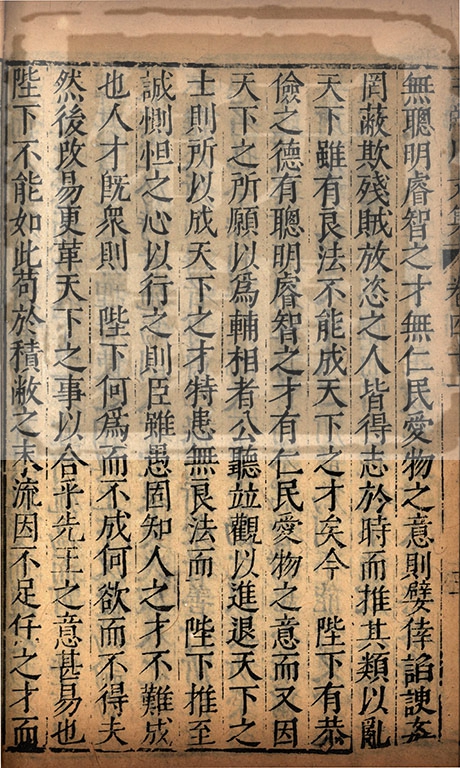 無聰明睿智之才無仁民愛物之意則嬖倖諂諛姦
罔蔽欺殘賊放恣之人皆得志於時而推其類以亂
天下雖有良法不能成天下之才矣今　陛下有恭
儉之德有聰明睿智之才有仁民愛物之意而又因
天下之所願以爲輔相者公聽並觀以進退天下之
士則所以成天下之才特患無良法而　陛下推至
誠惻怛之心以行之則臣雖愚固知人之才不難成
也人才旣衆則　陛下何爲而不成何欲而不得夫
然後改易更革天下之事以合乎先王之意甚易也
陛下不能如此苟於積敝之末流因不足任之才而